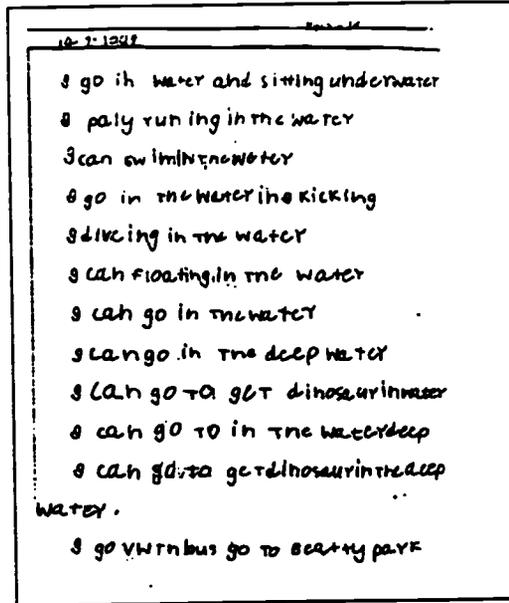 I go in water and sitting underwater
I paly run ing in the water
I can swim in the water
I go in the water ine kicking
I diveing in the water
I can floating.in the water
I can go in the water
I can go in the deep water
I can go to get dinosaur in water
I can go to in the water deep
I can go to get dinosaur in the deep
water.
I go bus go to Beatty park